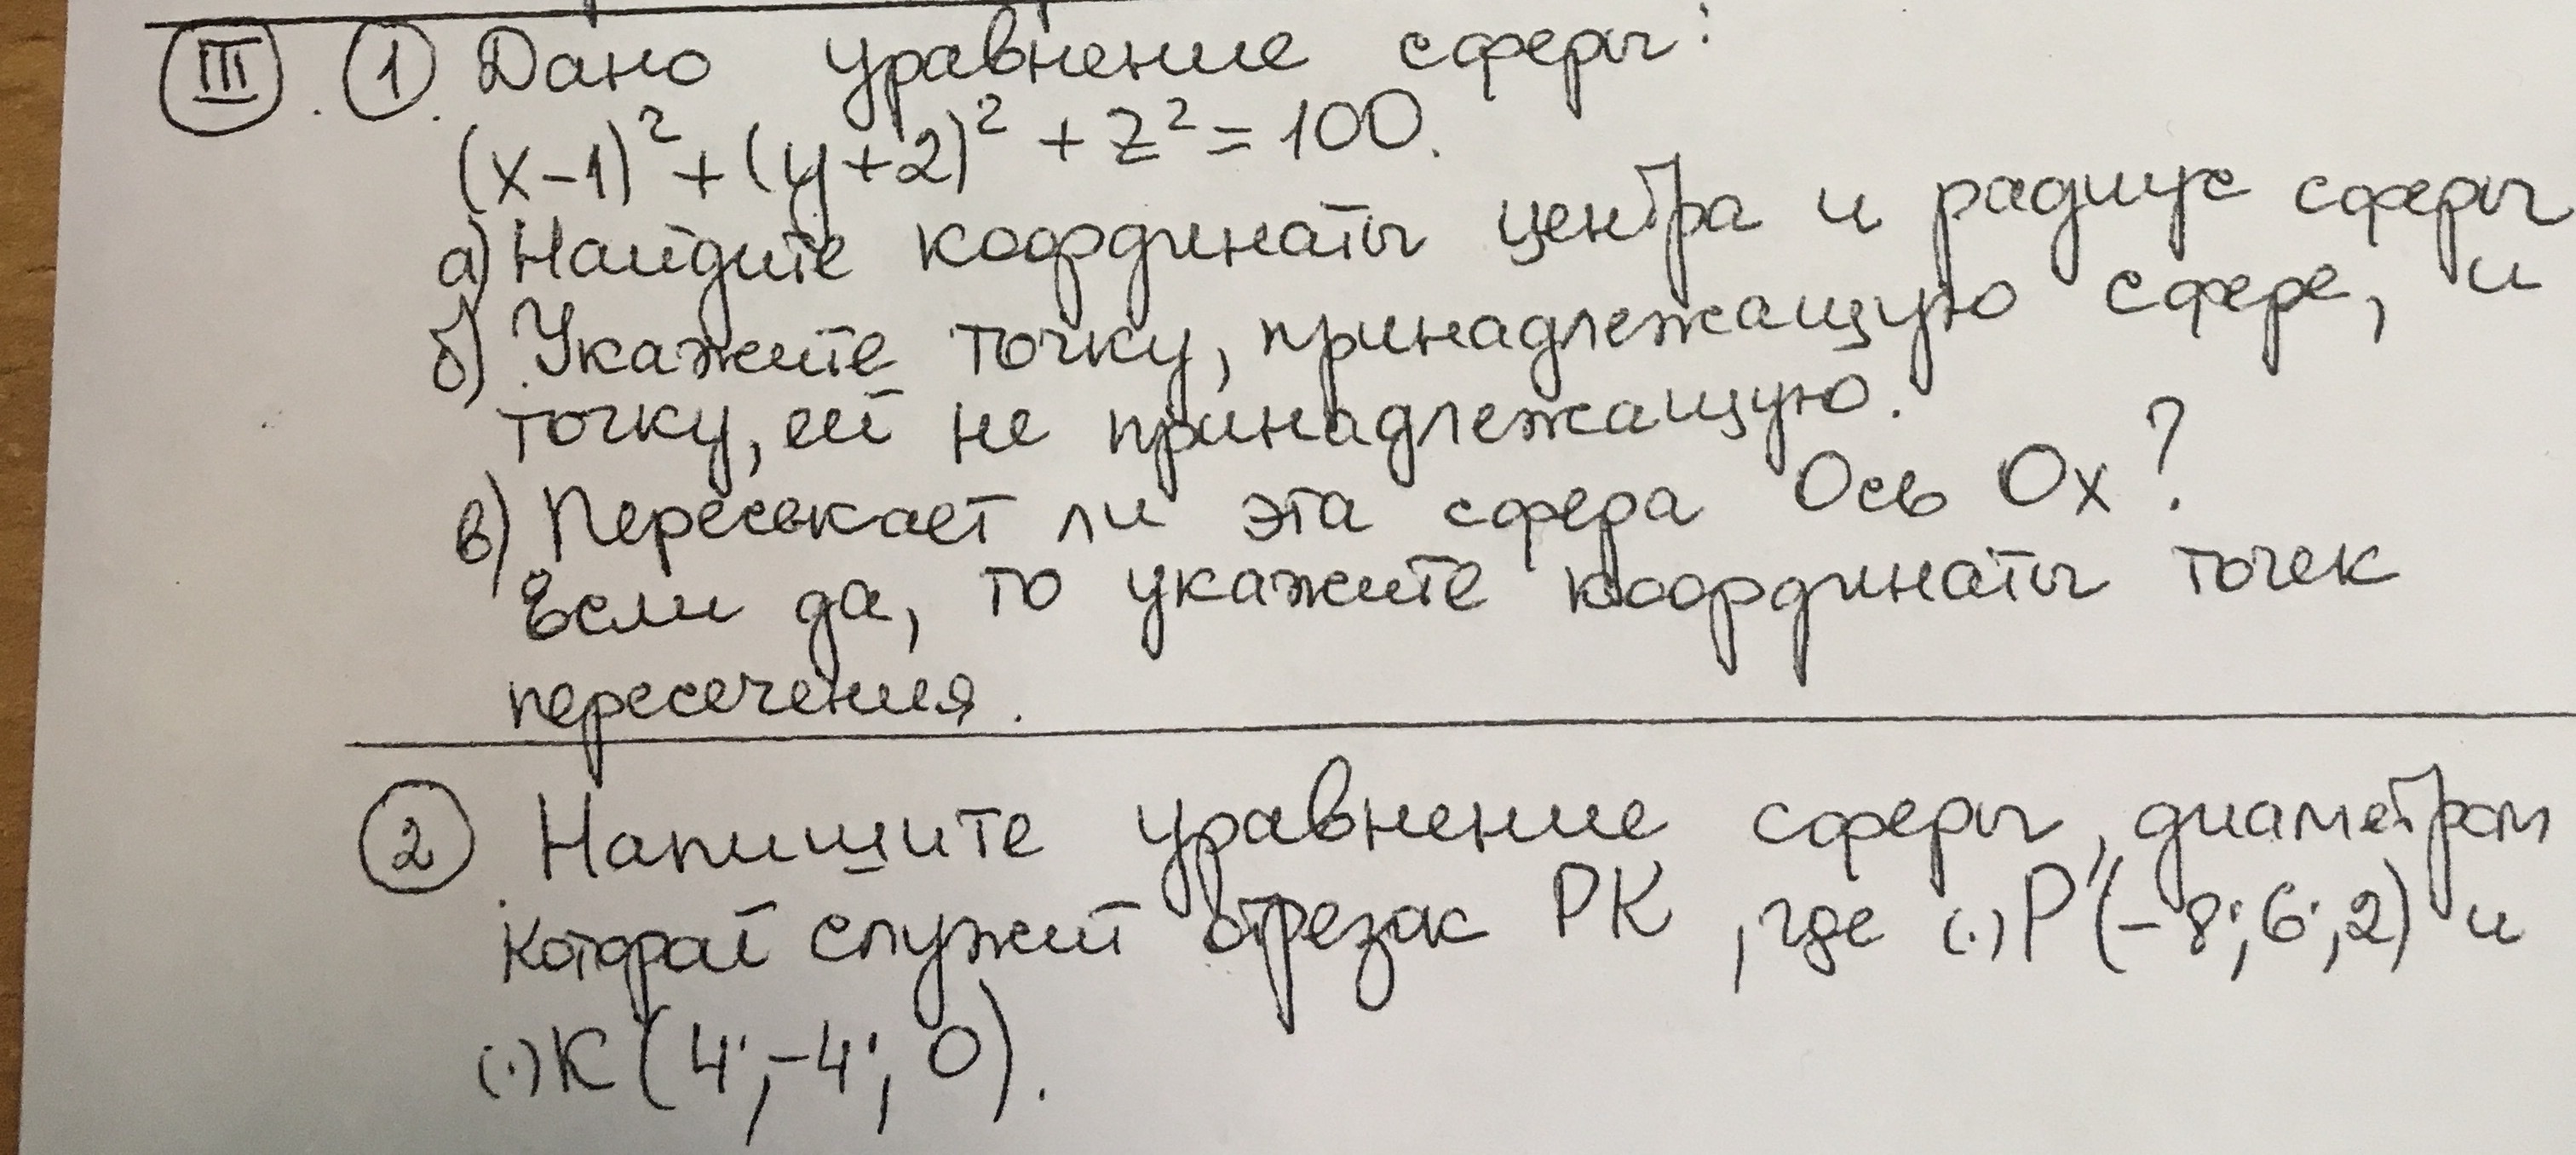 III. 1. Дано уравнение сферы:
(x-1)² + (y+2)² + z² = 100.
а) Найдите координаты центра и радиус сферы
б) Укажите точку, принадлежащую сфере, и
точку, ей не принадлежащую.
в) Пересекает ли эта сфера Ось Ох?
Если да, то укажите координаты точек
пересечения.
2. Напишите уравнение сферы, диаметром
которой служит отрезок РК, где (·) Р(-8; 6; 2) и
(·) К(4; -4; 0).